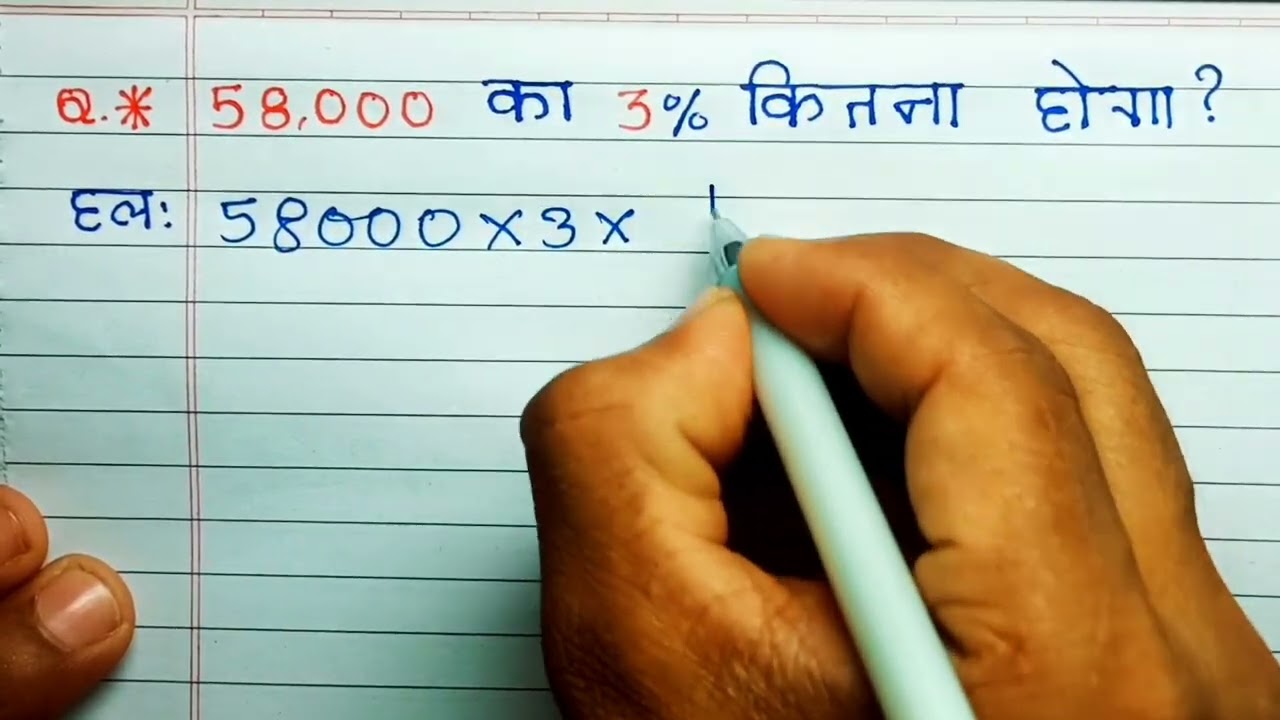 Q.* 58,000 का 3% कितना होगा?
हल: 58000 × 3 ×